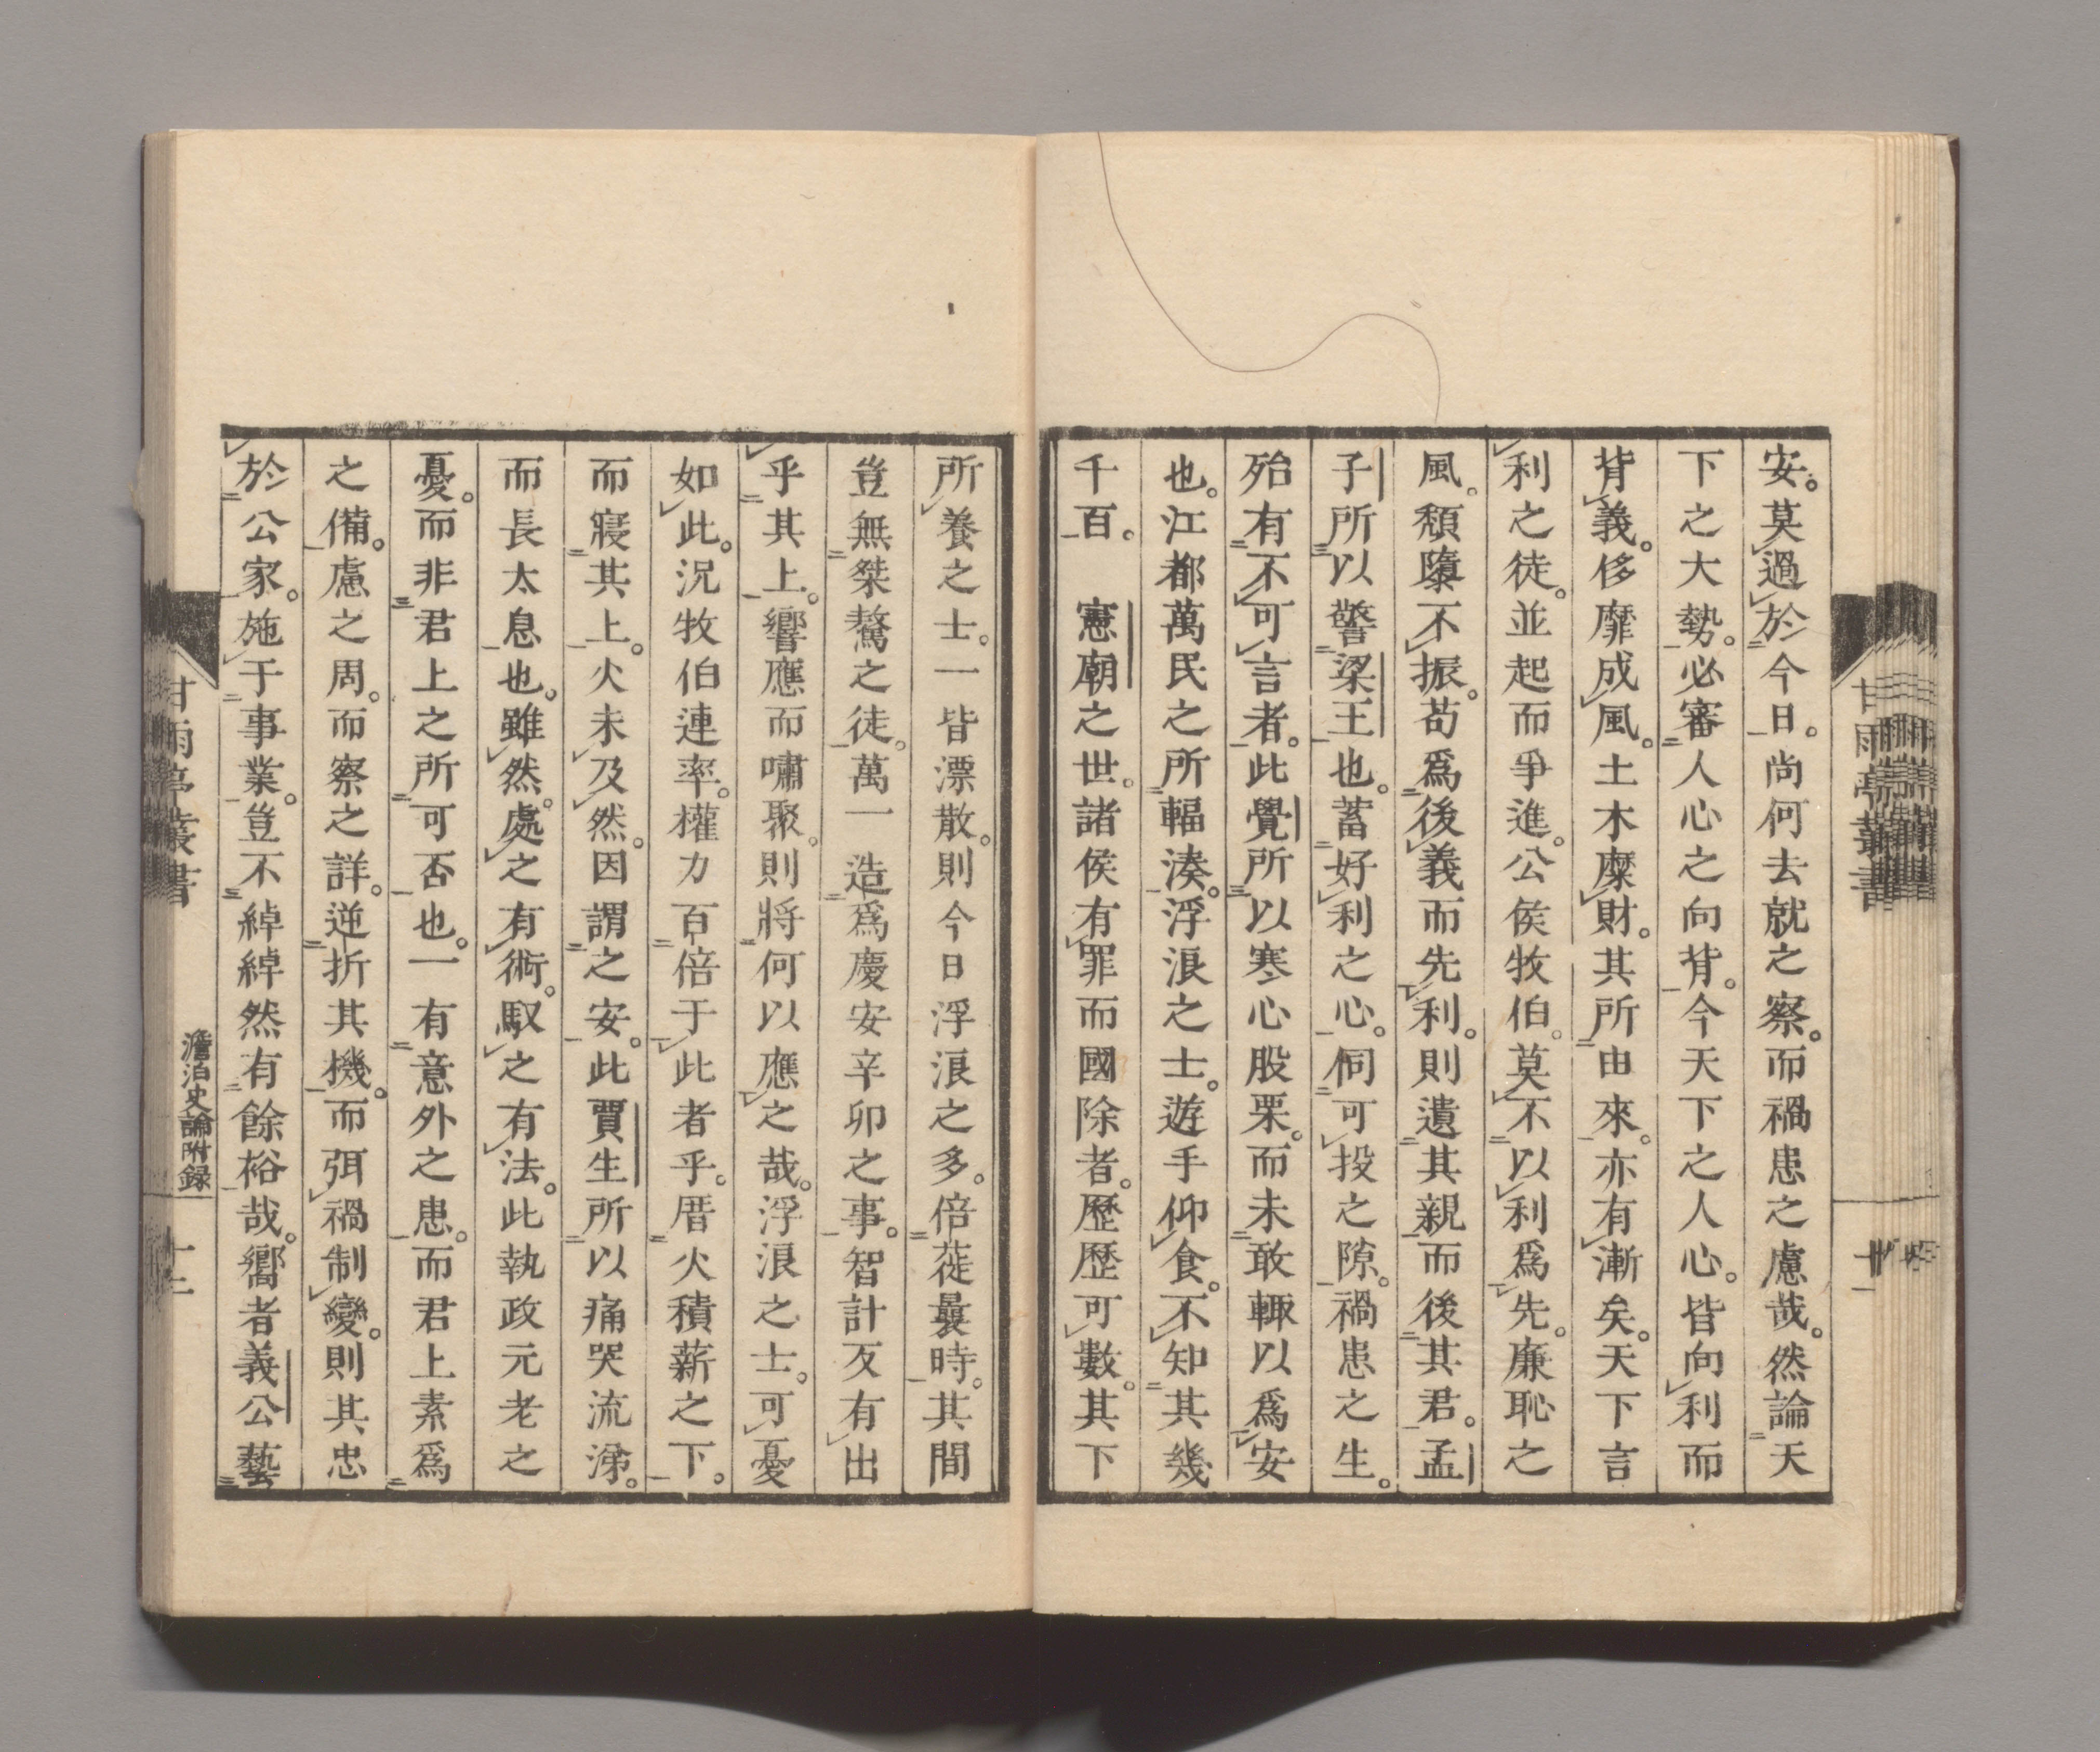 安。莫過於今日。尚何去就之察。而禍患之慮哉。然論天
下之大勢。必審人心之向背。今天下之人心。皆向利而
背義。侈靡成風。土木糜財。其所由來。亦有漸矣。天下言
利之徒。並起而爭進。公侯牧伯。莫不以利爲先。廉恥之
風。頽隳不振。苟爲後義而先利。則遺其親而後其君。孟
子所以警梁王也。蓄好利之心。伺可投之隙。禍患之生。
殆有不可言者。此覺所以寒心股栗。而未敢輙以爲安
也。江都萬民之所輻湊。浮浪之士。遊手仰食。不知其幾
千百。憲廟之世。諸侯有罪而國除者。歷歷可數。其下
所養之士。一皆漂散。則今日浮浪之多。倍蓰曩時。其間
豈無桀驁之徒。萬一造爲慶安辛卯之事。智計叐有出
乎其上。響應而嘯聚。則將何以應之哉。浮浪之士。可憂
如此。況牧伯連率。權力百倍于此者乎。厝火積薪之下。
而寢其上。火未及然。因謂之安。此賈生所以痛哭流涕。
而長太息也。雖然。處之有術。馭之有法。此執政元老之
憂。而非君上之所可否也。一有意外之患。而君上素爲
之備。慮之周。而察之詳。逆折其機。而弭禍制變。則其忠
於公家。施于事業。豈不綽綽然有餘裕哉。嚮者義公藝
甘雨亭叢書
澹泊史論附録